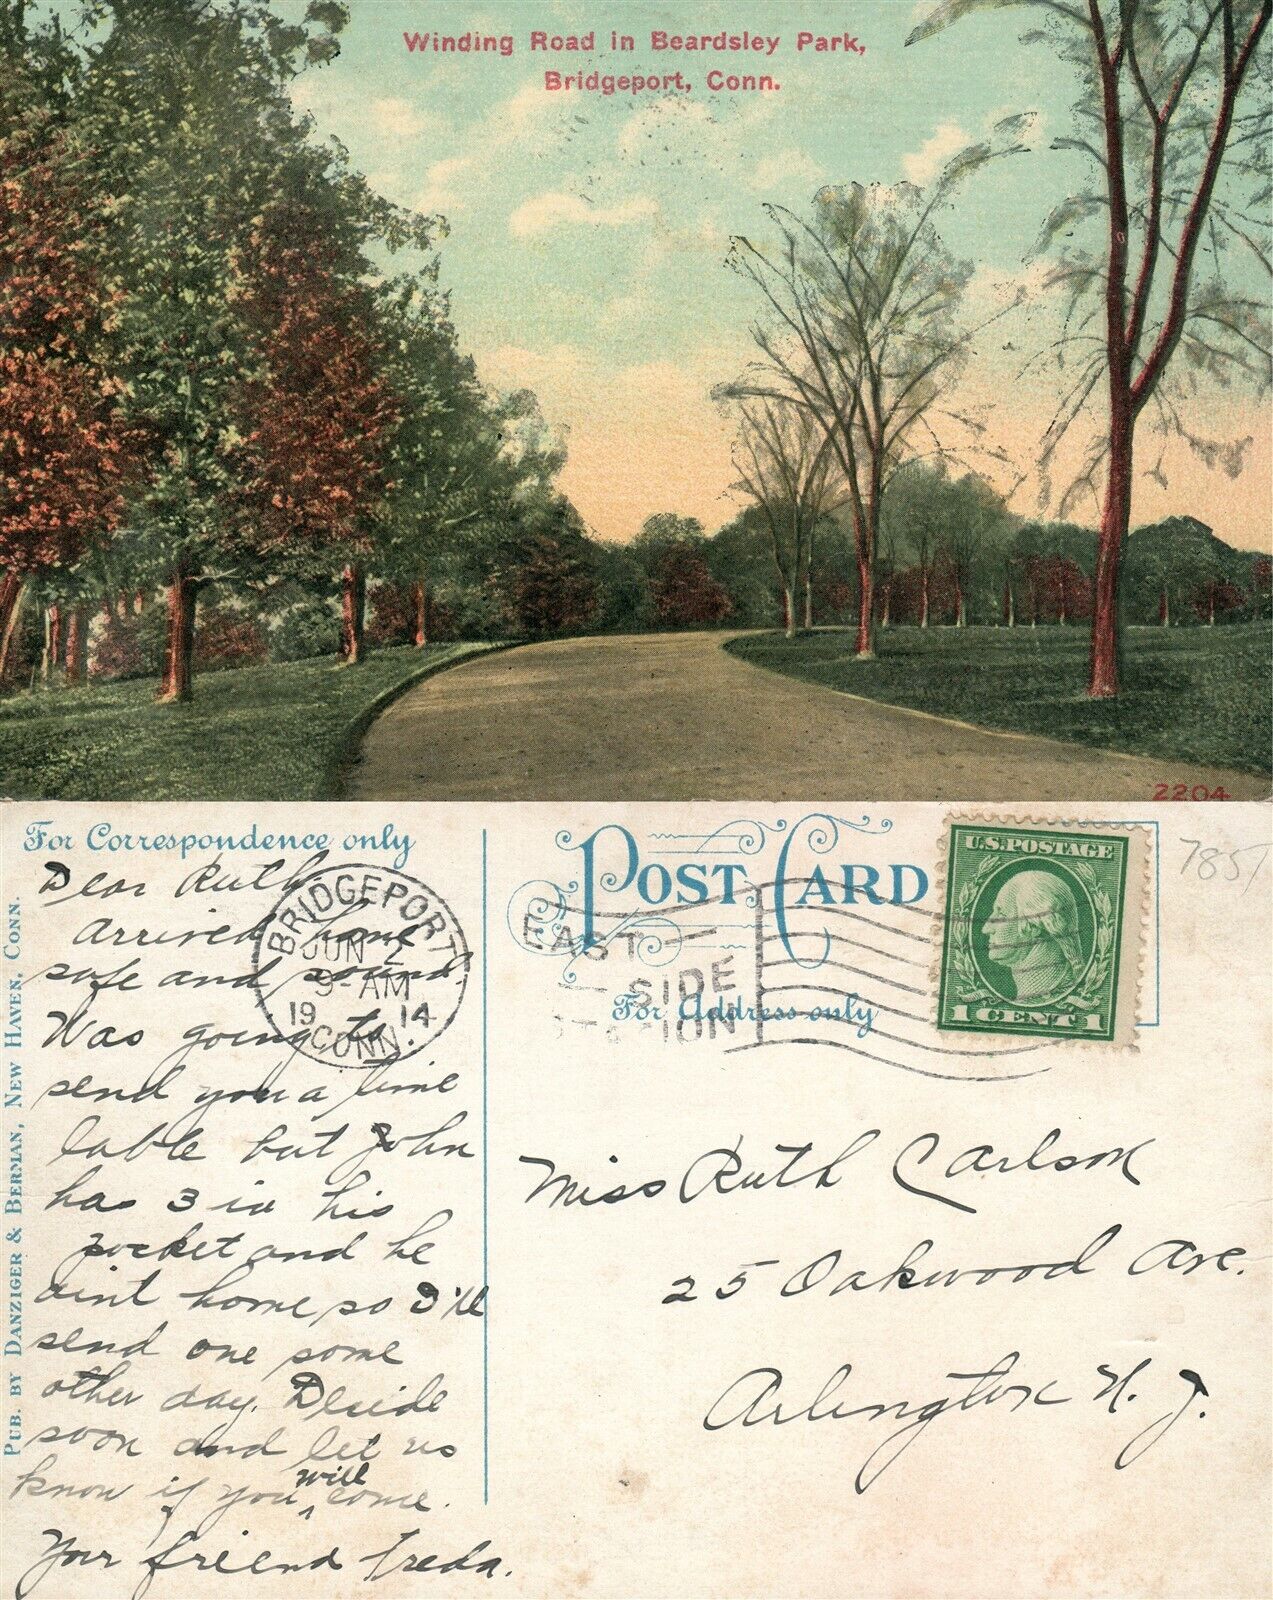 Winding Road in Beardsley Park,
Bridgeport, Conn.
2204
For Correspondence only
POST CARD
For Address only
PUB. BY DANZIGER & BERMAN, NEW HAVEN, CONN.
U.S. POSTAGE
1 CENT 1
7857
BRIDGEPORT
JUN 2
9-AM
19 14
CONN.
EAST
SIDE
STATION
Dear Ruth.
Arrived home
safe and sound.
Was going to
send you a time
table but John
has 3 in his
pocket and he
aint home so I'll
send one some
other day. Deside
soon and let us
know if you will come.
Your friend Freda.
Miss Ruth Carlson
25 Oakwood Ave.
Arlington N. J.